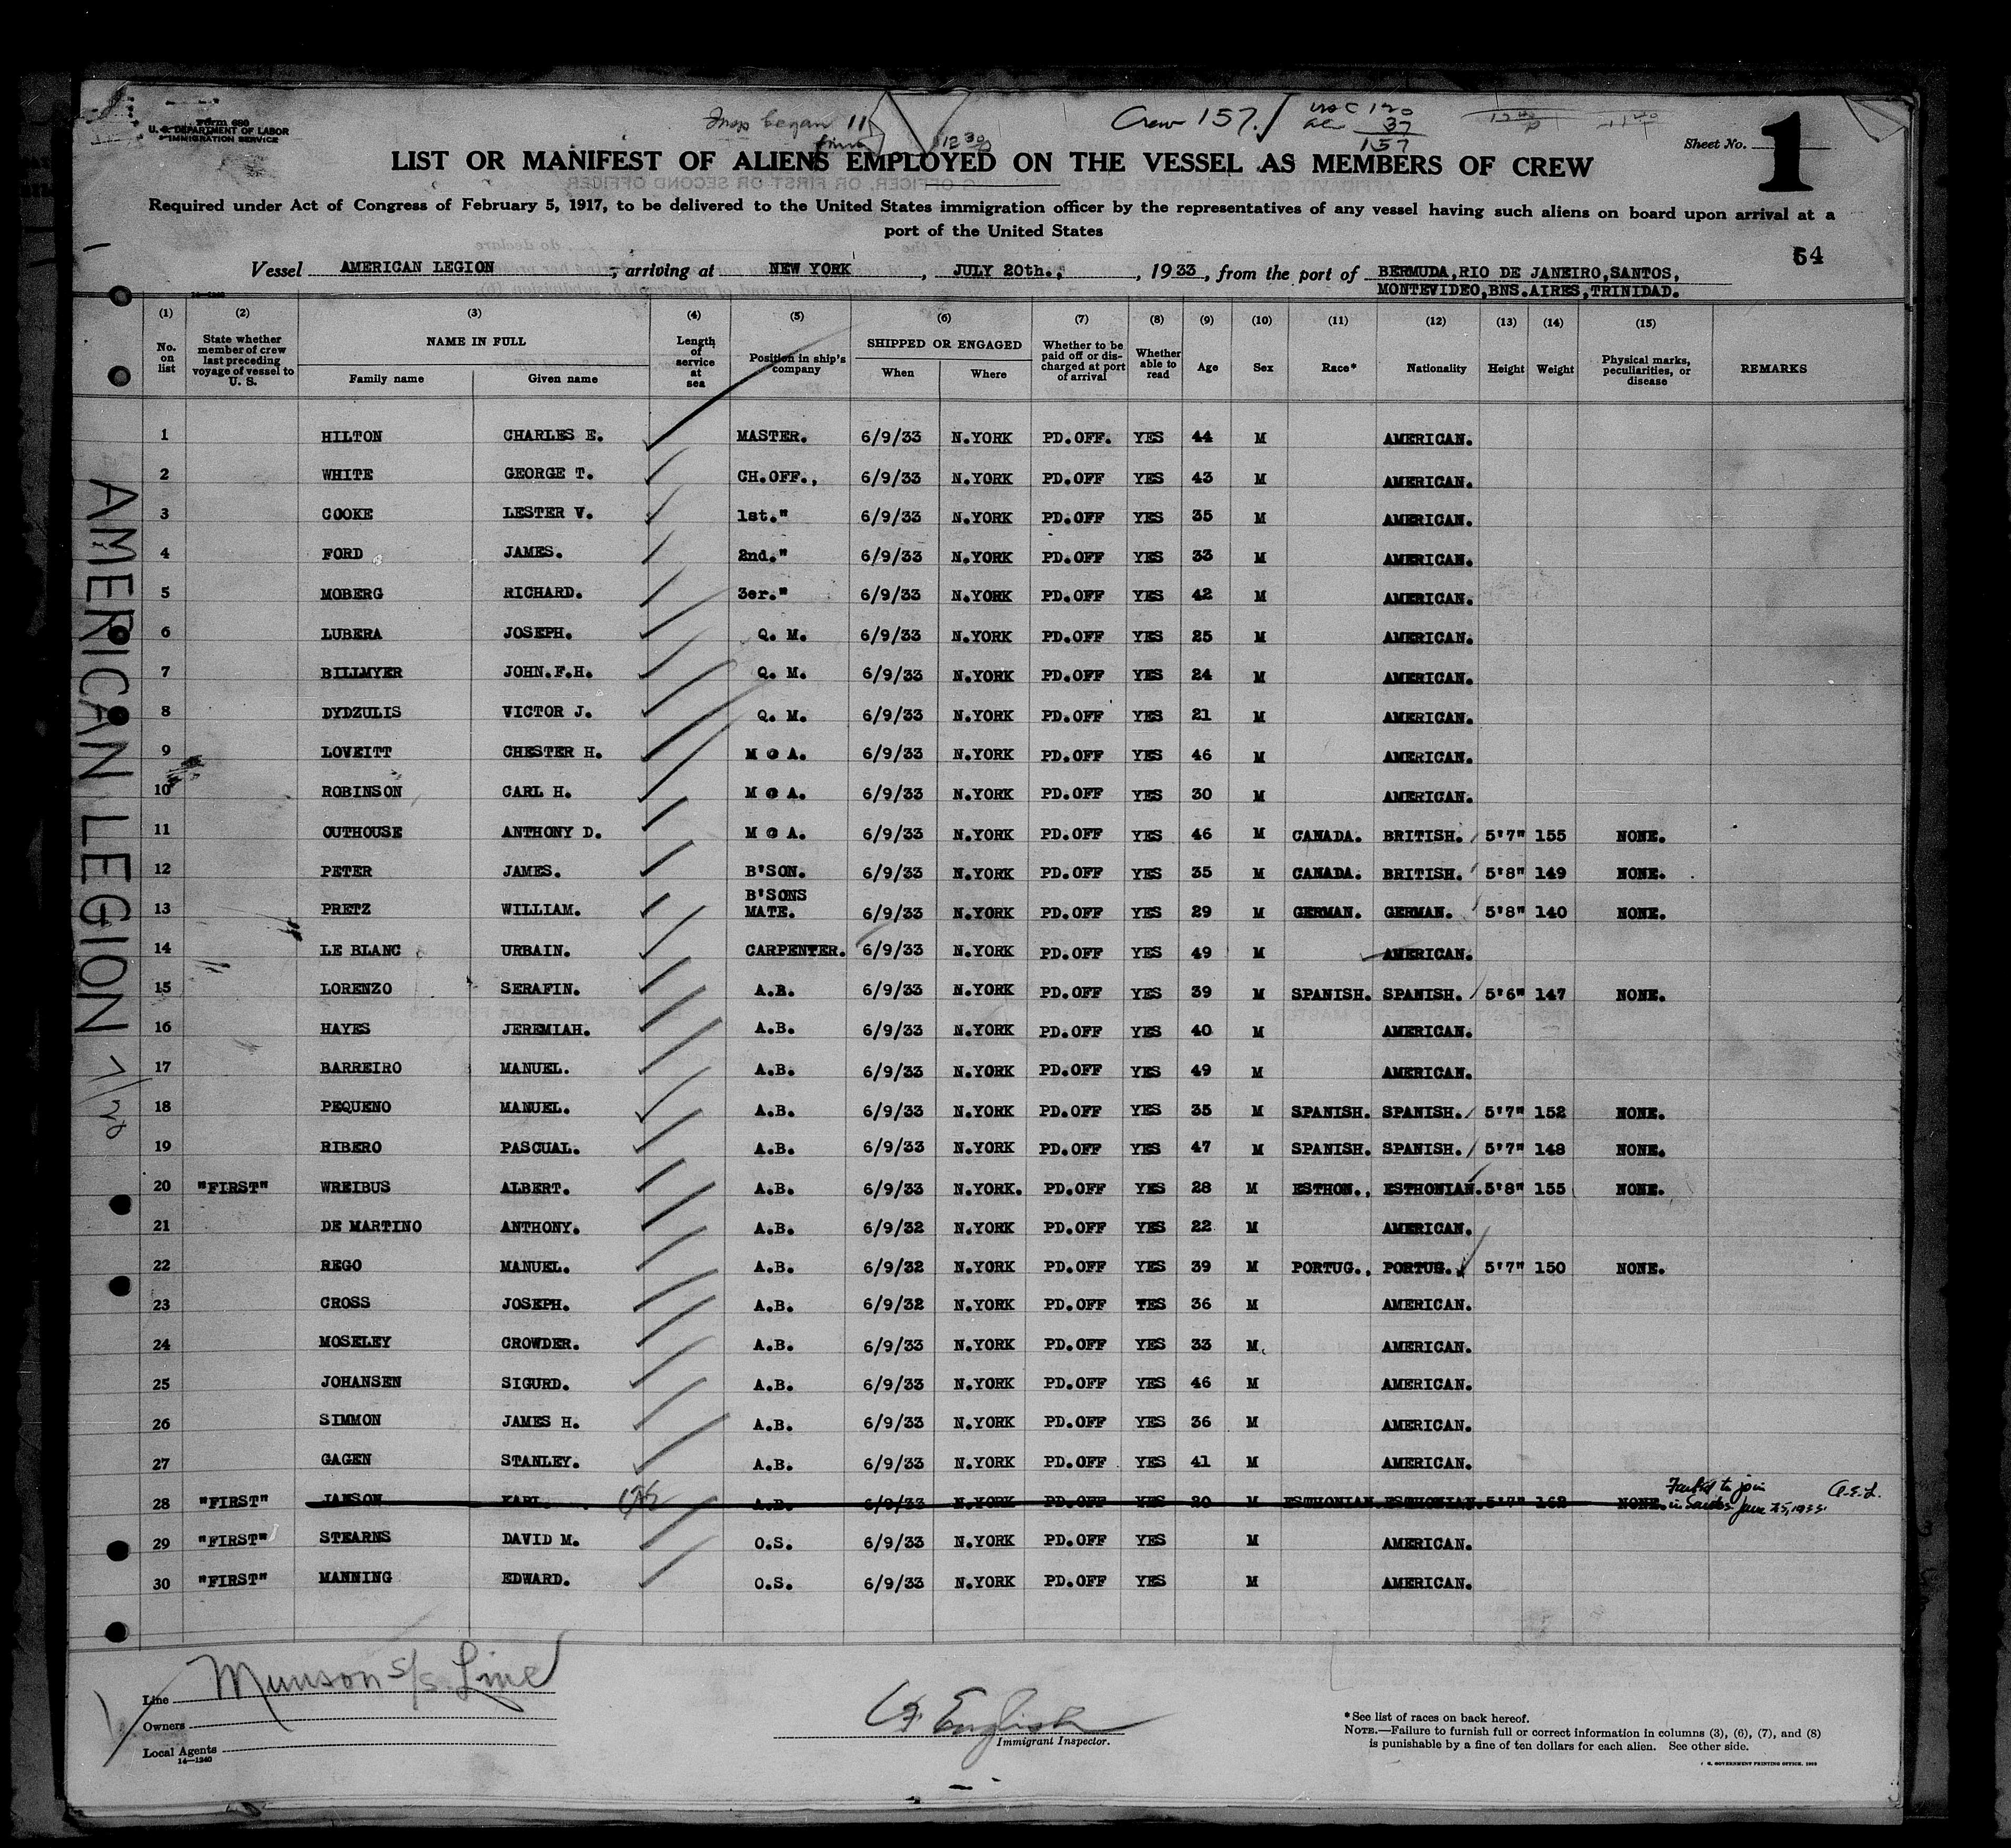 Form 680
U. S. DEPARTMENT OF LABOR
IMMIGRATION SERVICE
Insp began 11
finis 12 30
Crew 157.
USC 120
al 37
157
Sheet No. 1
LIST OR MANIFEST OF ALIENS EMPLOYED ON THE VESSEL AS MEMBERS OF CREW
Required under Act of Congress of February 5, 1917, to be delivered to the United States immigration officer by the representatives of any vessel having such aliens on board upon arrival at a
port of the United States
64
Vessel AMERICAN LEGION, arriving at NEW YORK, JULY 20th., 1933, from the port of BERMUDA,RIO DE JANEIRO,SANTOS,
MONTEVIDEO,BNS.AIRES,TRINIDAD.
14—1240
(1) (2) (3) (4) (5) (6) (7) (8) (9) (10) (11) (12) (13) (14) (15)
No. on list
State whether member of crew last preceding voyage of vessel to U. S.
NAME IN FULL
Family name Given name
Length of service at sea
Position in ship's company
SHIPPED OR ENGAGED
When Where
Whether to be paid off or discharged at port of arrival
Whether able to read
Age Sex Race* Nationality Height Weight
Physical marks, peculiarities, or disease
REMARKS
1 HILTON CHARLES E. MASTER. 6/9/33 N.YORK PD.OFF. YES 44 M AMERICAN.
2 WHITE GEORGE T. CH.OFF., 6/9/33 N.YORK PD.OFF YES 43 M AMERICAN.
3 COOKE LESTER V. 1st." 6/9/33 N.YORK PD.OFF YES 35 M AMERICAN.
4 FORD JAMES. 2nd." 6/9/33 N.YORK PD.OFF YES 33 M AMERICAN.
5 MOBERG RICHARD. 3er." 6/9/33 N.YORK PD.OFF YES 42 M AMERICAN.
6 LUBERA JOSEPH. Q. M. 6/9/33 N.YORK PD.OFF YES 25 M AMERICAN.
7 BILLMYER JOHN.F.H. Q. M. 6/9/33 N.YORK PD.OFF YES 24 M AMERICAN.
8 DYDZULIS VICTOR J. Q. M. 6/9/33 N.YORK PD.OFF YES 21 M AMERICAN.
9 LOVEITT CHESTER H. M @ A. 6/9/33 N.YORK PD.OFF YES 46 M AMERICAN.
10 ROBINSON CARL H. M @ A. 6/9/33 N.YORK PD.OFF YES 30 M AMERICAN.
11 OUTHOUSE ANTHONY D. M @ A. 6/9/33 N.YORK PD.OFF YES 46 M CANADA. BRITISH. 5'7" 155 NONE.
12 PETER JAMES. B'SON. 6/9/33 N.YORK PD.OFF YES 35 M CANADA. BRITISH. 5'8" 149 NONE.
13 PRETZ WILLIAM. B'SONS MATE. 6/9/33 N.YORK PD.OFF YES 29 M GERMAN. GERMAN. 5'8" 140 NONE.
14 LE BLANC URBAIN. CARPENTER. 6/9/33 N.YORK PD.OFF YES 49 M AMERICAN.
15 LORENZO SERAFIN. A.B. 6/9/33 N.YORK PD.OFF YES 39 M SPANISH. SPANISH. 5'6" 147 NONE.
16 HAYES JEREMIAH. A.B. 6/9/33 N.YORK PD.OFF YES 40 M AMERICAN.
17 BARREIRO MANUEL. A.B. 6/9/33 N.YORK PD.OFF YES 49 M AMERICAN.
18 PEQUENO MANUEL. A.B. 6/9/33 N.YORK PD.OFF YES 35 M SPANISH. SPANISH. 5'7" 152 NONE.
19 RIBERO PASCUAL. A.B. 6/9/33 N.YORK PD.OFF YES 47 M SPANISH. SPANISH. 5'7" 148 NONE.
20 "FIRST" WREIBUS ALBERT. A.B. 6/9/33 N.YORK. PD.OFF YES 28 M ESTHON., ESTHONIAN. 5'8" 155 NONE.
21 DE MARTINO ANTHONY. A.B. 6/9/32 N.YORK PD.OFF YES 22 M AMERICAN.
22 REGO MANUEL. A.B. 6/9/32 N.YORK PD.OFF YES 39 M PORTUG., PORTUG. 5'7" 150 NONE.
23 CROSS JOSEPH. A.B. 6/9/32 N.YORK PD.OFF TES 36 M AMERICAN.
24 MOSELEY CROWDER. A.B. 6/9/33 N.YORK PD.OFF YES 33 M AMERICAN.
25 JOHANSEN SIGURD. A.B. 6/9/33 N.YORK PD.OFF YES 46 M AMERICAN.
26 SIMMON JAMES H. A.B. 6/9/33 N.YORK PD.OFF YES 36 M AMERICAN.
27 GAGEN STANLEY. A.B. 6/9/33 N.YORK PD.OFF YES 41 M AMERICAN.
28 "FIRST" JANSON KARL. A.B. 6/9/33 N.YORK PD.OFF YES 20 M ESTHONIAN. ESTHONIAN. 5'7" 162 NONE. Failed to join in Santos June 25, 1933. A.E.L.
29 "FIRST" STEARNS DAVID M. O.S. 6/9/33 N.YORK PD.OFF YES M AMERICAN.
30 "FIRST" MANNING EDWARD. O.S. 6/9/33 N.YORK PD.OFF YES M AMERICAN.
AMERICAN LEGION 7/20
Line Munson S/S. Line
Owners
Local Agents
14—1240
English
Immigrant Inspector.
*See list of races on back hereof.
NOTE.—Failure to furnish full or correct information in columns (3), (6), (7), and (8)
is punishable by a fine of ten dollars for each alien. See other side.
GOVERNMENT PRINTING OFFICE.